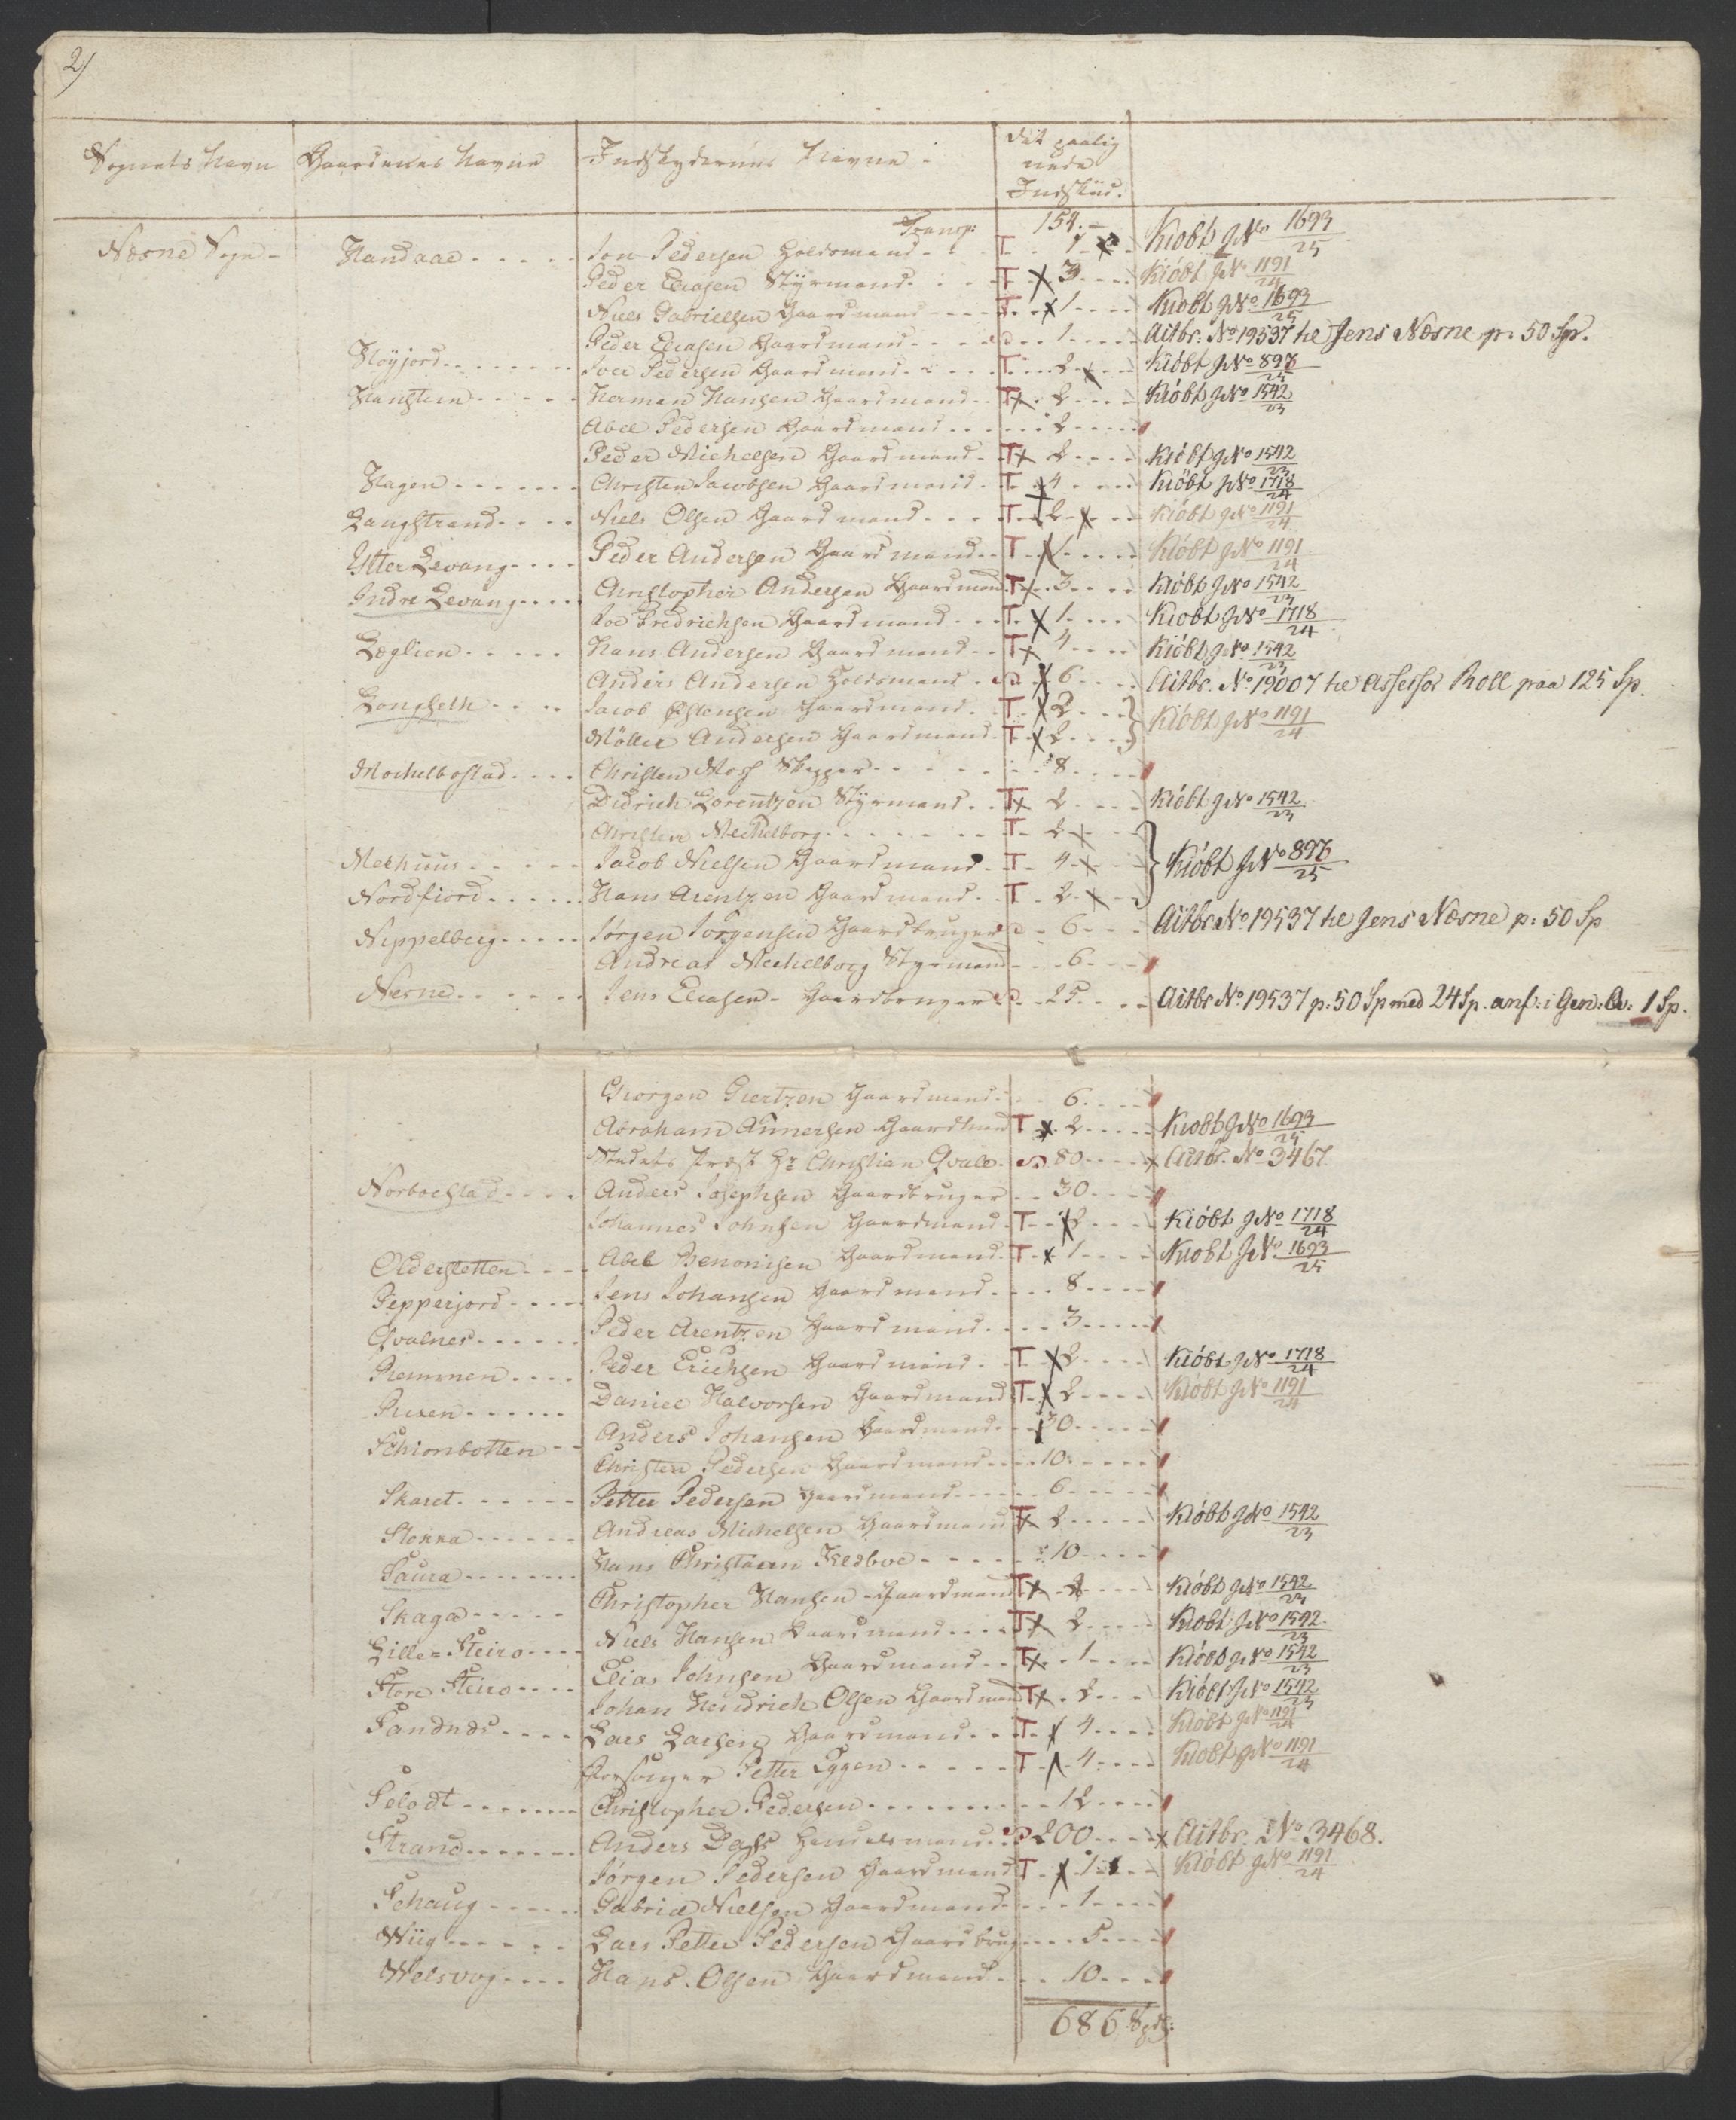 2)
Sognets Navn Gaardenes Navne Indskydernes Navne Det paalignede Indskud.
Transp: 154.-
Næsne Sogn - Handaae - - - - - Jon Pedersen Holdsmand - - T - 1 - x - Kiøbt J No 1693/25
Peder Eliasen Styrmand - - T - x 3 - - - Kiøbt J No 1191/24
Niels Gabrielsen Gaardmand - - - T - x 1 - - - Kiøbt J No 1693/25
Peder Eliasen Gaardmand - - - 1 - - - Actbr: No 19537 til Jens Næsne p: 50 Sp.
Høyjord - - - - - Iver Pedersen Gaardmand - - - T - - 2 - x - Kiøbt J No 897/25
Hanstein - - - - - Herman Hansen Gaardmand - - T x - 2 - - - Kiøbt J No 1542/23
Abel Pedersen Gaardmand - - - - 2 - - -
Peder Michelsen Gaardmand - - T x 2 - - - Kiøbt J No 1542/23
Hagen - - - - - Christen Jacobsen Gaardmand - T - x 4 - - - Kiøbt J No 1718/24
Langstrand - - - - Niels Olsen Gaardmand - - - T - 2 - x - - Kiøbt J No 1191/24
Ytter Levang - - - - Peder Andersen Gaardmand - - T - x 1 - - - Kiøbt J No 1191/24
Indre Levang - - - - Christopher Andersen Gaardmand T x - 3 - - - Kiøbt J No 1542/23
Fredrichsen Gaardmand - - - T - x 1 - - - Kiøbt J No 1718/24
Leglien - - - - - Hans Andersen Gaardmand - - T x 4 - - - Kiøbt J No 1542/23
Anders Andersen Holdsmand - - x 6 - - - Actbr. No 19007 til Assessor Roll paa 125 Sp.
Longseth - - - - Jacob Gaardmand - T - x 2 - - - } Kiøbt J No 1191/24
Møller Andersen Gaardmand - T - x 2 - - - }
Mochelbostad - - - - Christen Moss Skipper - - - - - - 8 - - -
Didrich Lorentzen Styrmand - - T x 2 - - - Kiøbt J No 1542/23
Christen Mechelborg - - - - - - T - 2 x - - }
Mekhuus - - - - - Jacob Nielsen Gaardmand - T - 4 - x - - } Kiøbt J No 897/25
Nordfiord - - - - - Hans Arentzen Gaardmand - - T - 2 - x - }
Neppelberg - - - - - Jørgen Jørgensen Gaardbruger - 6 - - - Actbr No 19537 til Jens Næsne p: 50 Sp
Andreas Mechelborg Styrmand - - - 6 - - -
Nesne - - - - - - Jens Eliasen - Gaardbruger - 25 - - - Actbr No 19537 p: 50 Sp med 24 Sp. anf: i Gen: Qv: 1 Sp.
Giertzen Gaardmand - - - 6 - - -
Abraham Gaardmand T - x - 2 - - - - Kiøbt J No 1693/25
Stedets Præst Hr Christian Qvale - 80 - - - x Actbr. No 3467
Norboestad - - - - Anders Josephsen Gaardbruger - - 30 - - -
Johannes Johnsen Gaardmand - T - x 2 - - - Kiøbt J No 1718/24
Olderstetten - - - - Abel Benonisen Gaardmand - T - x 1 - - - Kiøbt J No 1693/25
Pepperjord - - - - Jens Johansen Gaardmand - - - - 8 - - -
Qvalnes - - - - - - Peder Arentzen Gaardmand - - - - 3 - - -
Remmen - - - - Peder Erichsen Gaardmand - - T - x 2 - - - Kiøbt J No 1718/24
- - - - - - Daniel Halvorsen Gaardmand - T - x 2 - - - Kiøbt J No 1191/24
Schionbotten - - Anders Johansen Gaardmand - - - 30 - - -
Christen Pedersen Gaardmand - - - 10 - - -
Skaret - - - - - - Petter Pedersen Gaardmand - - - - 6 - - -
Stokka - - - - - - Andreas Michelsen Gaardmand T x 2 - - - Kiøbt J No 1542/23
Saura - - - - - - - Hans Christian - - - - - - 10 - - -
Skaga - - - - - Christopher Hansen - Gaardmand T x - 2 - - - Kiøbt J No 1542/23
Liller Steiro - - - - Niels Hansen Gaardmand - - - - T x 2 - - - Kiøbt J No 1542/23
Store Steiro - - - - Elias Johnsen Gaardmand - - T x - 1 - - - Kiøbt J No 1542/23
Johan Hendrich Olsen Gaardmand T x - 2 - - - Kiøbt J No 1542/23
Sandnæs - - - - Lars Larsen Gaardmand - - T - x 4 - - - Kiøbt J No 1191/24
Forsanger Petter Eggen - - - - - T - x 4 - - - Kiøbt J No 1191/24
Selodt - - - - - - Christopher Pedersen - - - - - - - - 12 - - -
Strand - - - - - - Anders Dass Handelsmand - 200 - - - x Actbr. No 3468.
Jørgen Pedersen Gaardmand T - x 1 - - Kiøbt J No 1191/24
Schaug - - - - - Gabriel Nielsen Gaardmand - - - 1 - - -
Wiig - - - - - Lars Petter Pedersen Gaardbrug - - - 5 - - -
Welsvog - - - - Hans Olsen Gaardmand - - - 10 - - -
686 Spdlr: